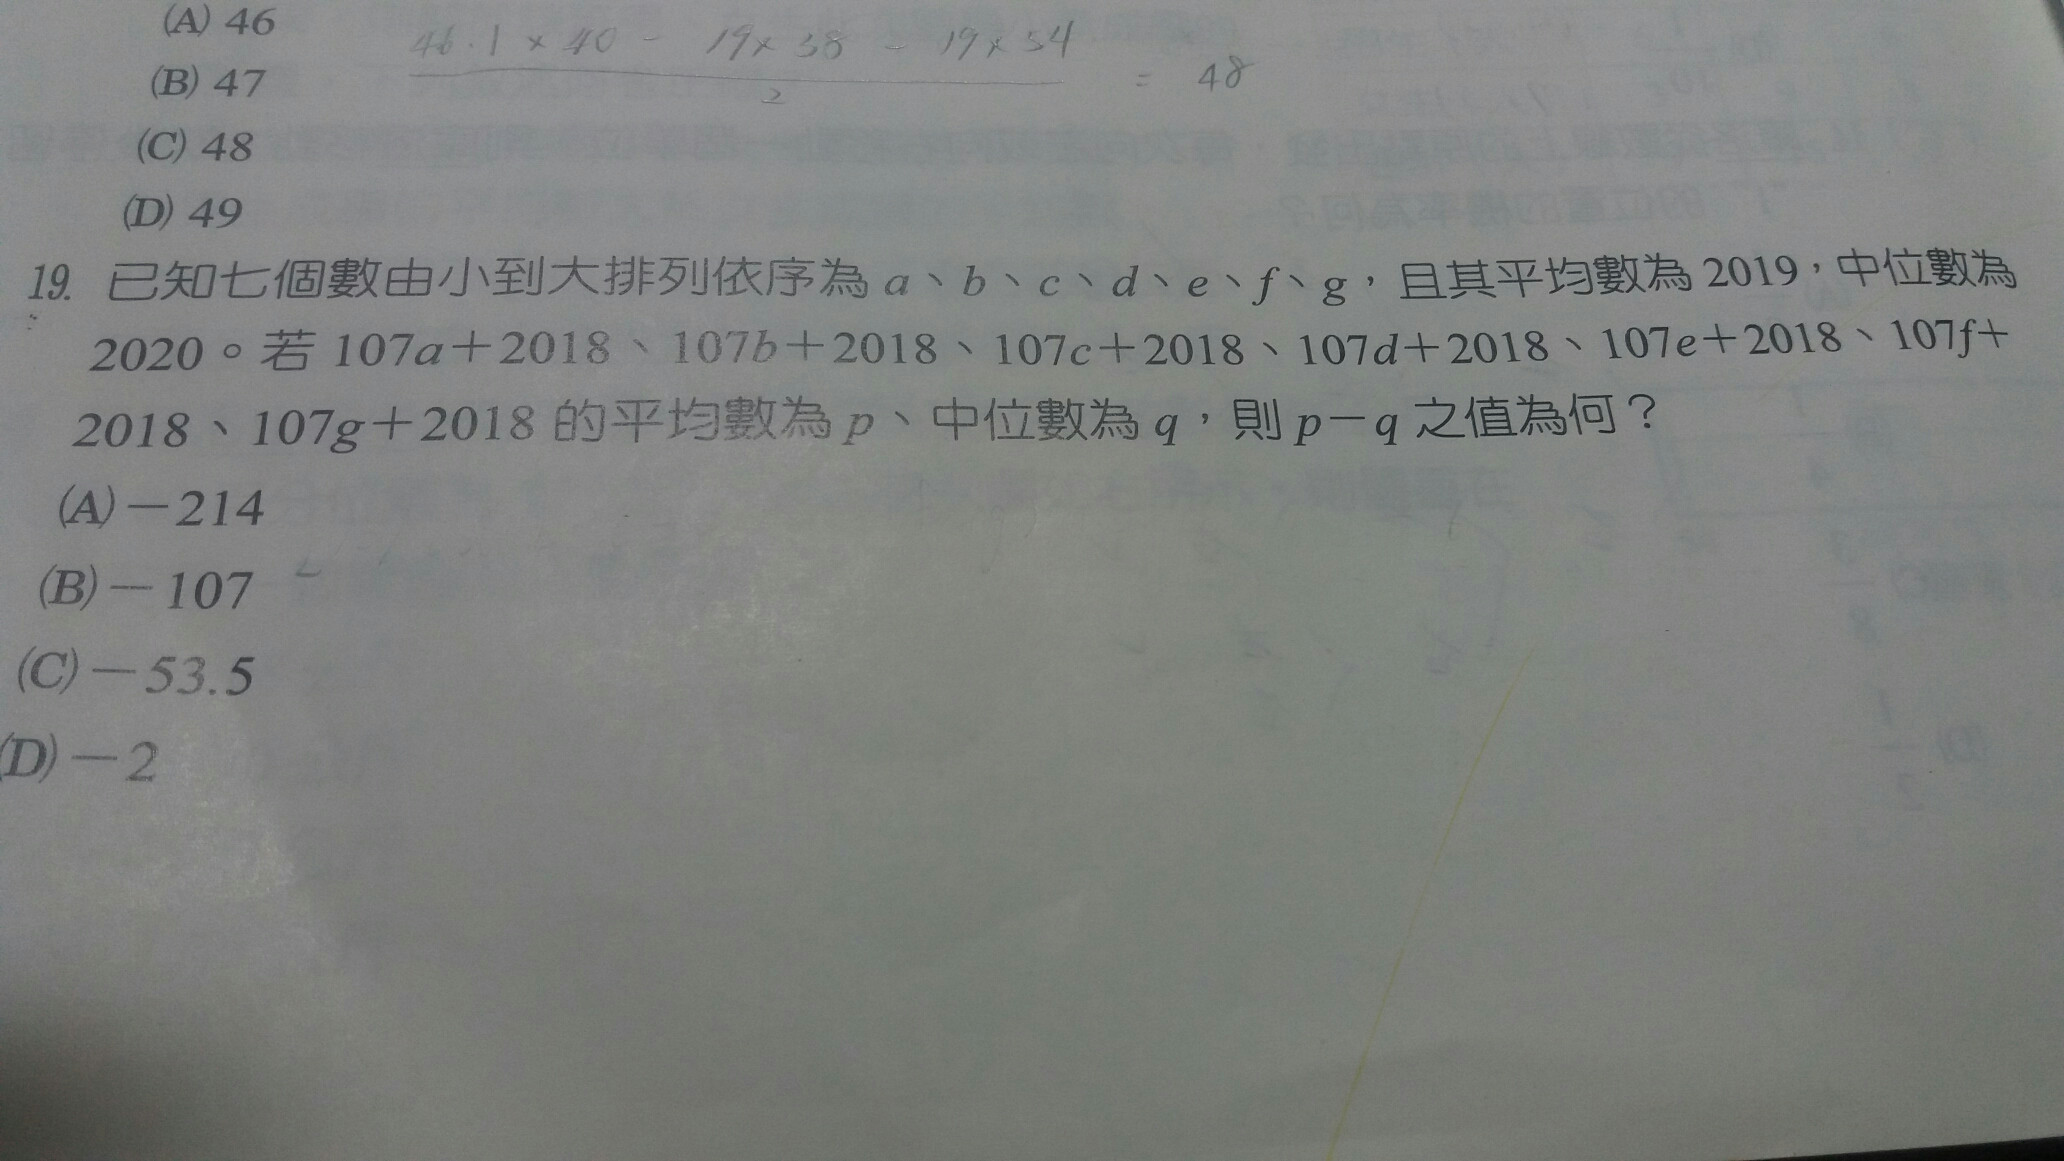 (A) 46
46.1 × 40 - 19 × 38 - 19 × 54
(B) 47
2
= 48
(C) 48
(D) 49
19. 已知七個數由小到大排列依序為 a、b、c、d、e、f、g,且其平均數為 2019,中位數為
2020。若 107a+2018、107b+2018、107c+2018、107d+2018、107e+2018、107f+
2018、107g+2018 的平均數為 p、中位數為 q,則 p-q 之值為何?
(A)-214
(B)-107
(C)-53.5
(D)-2